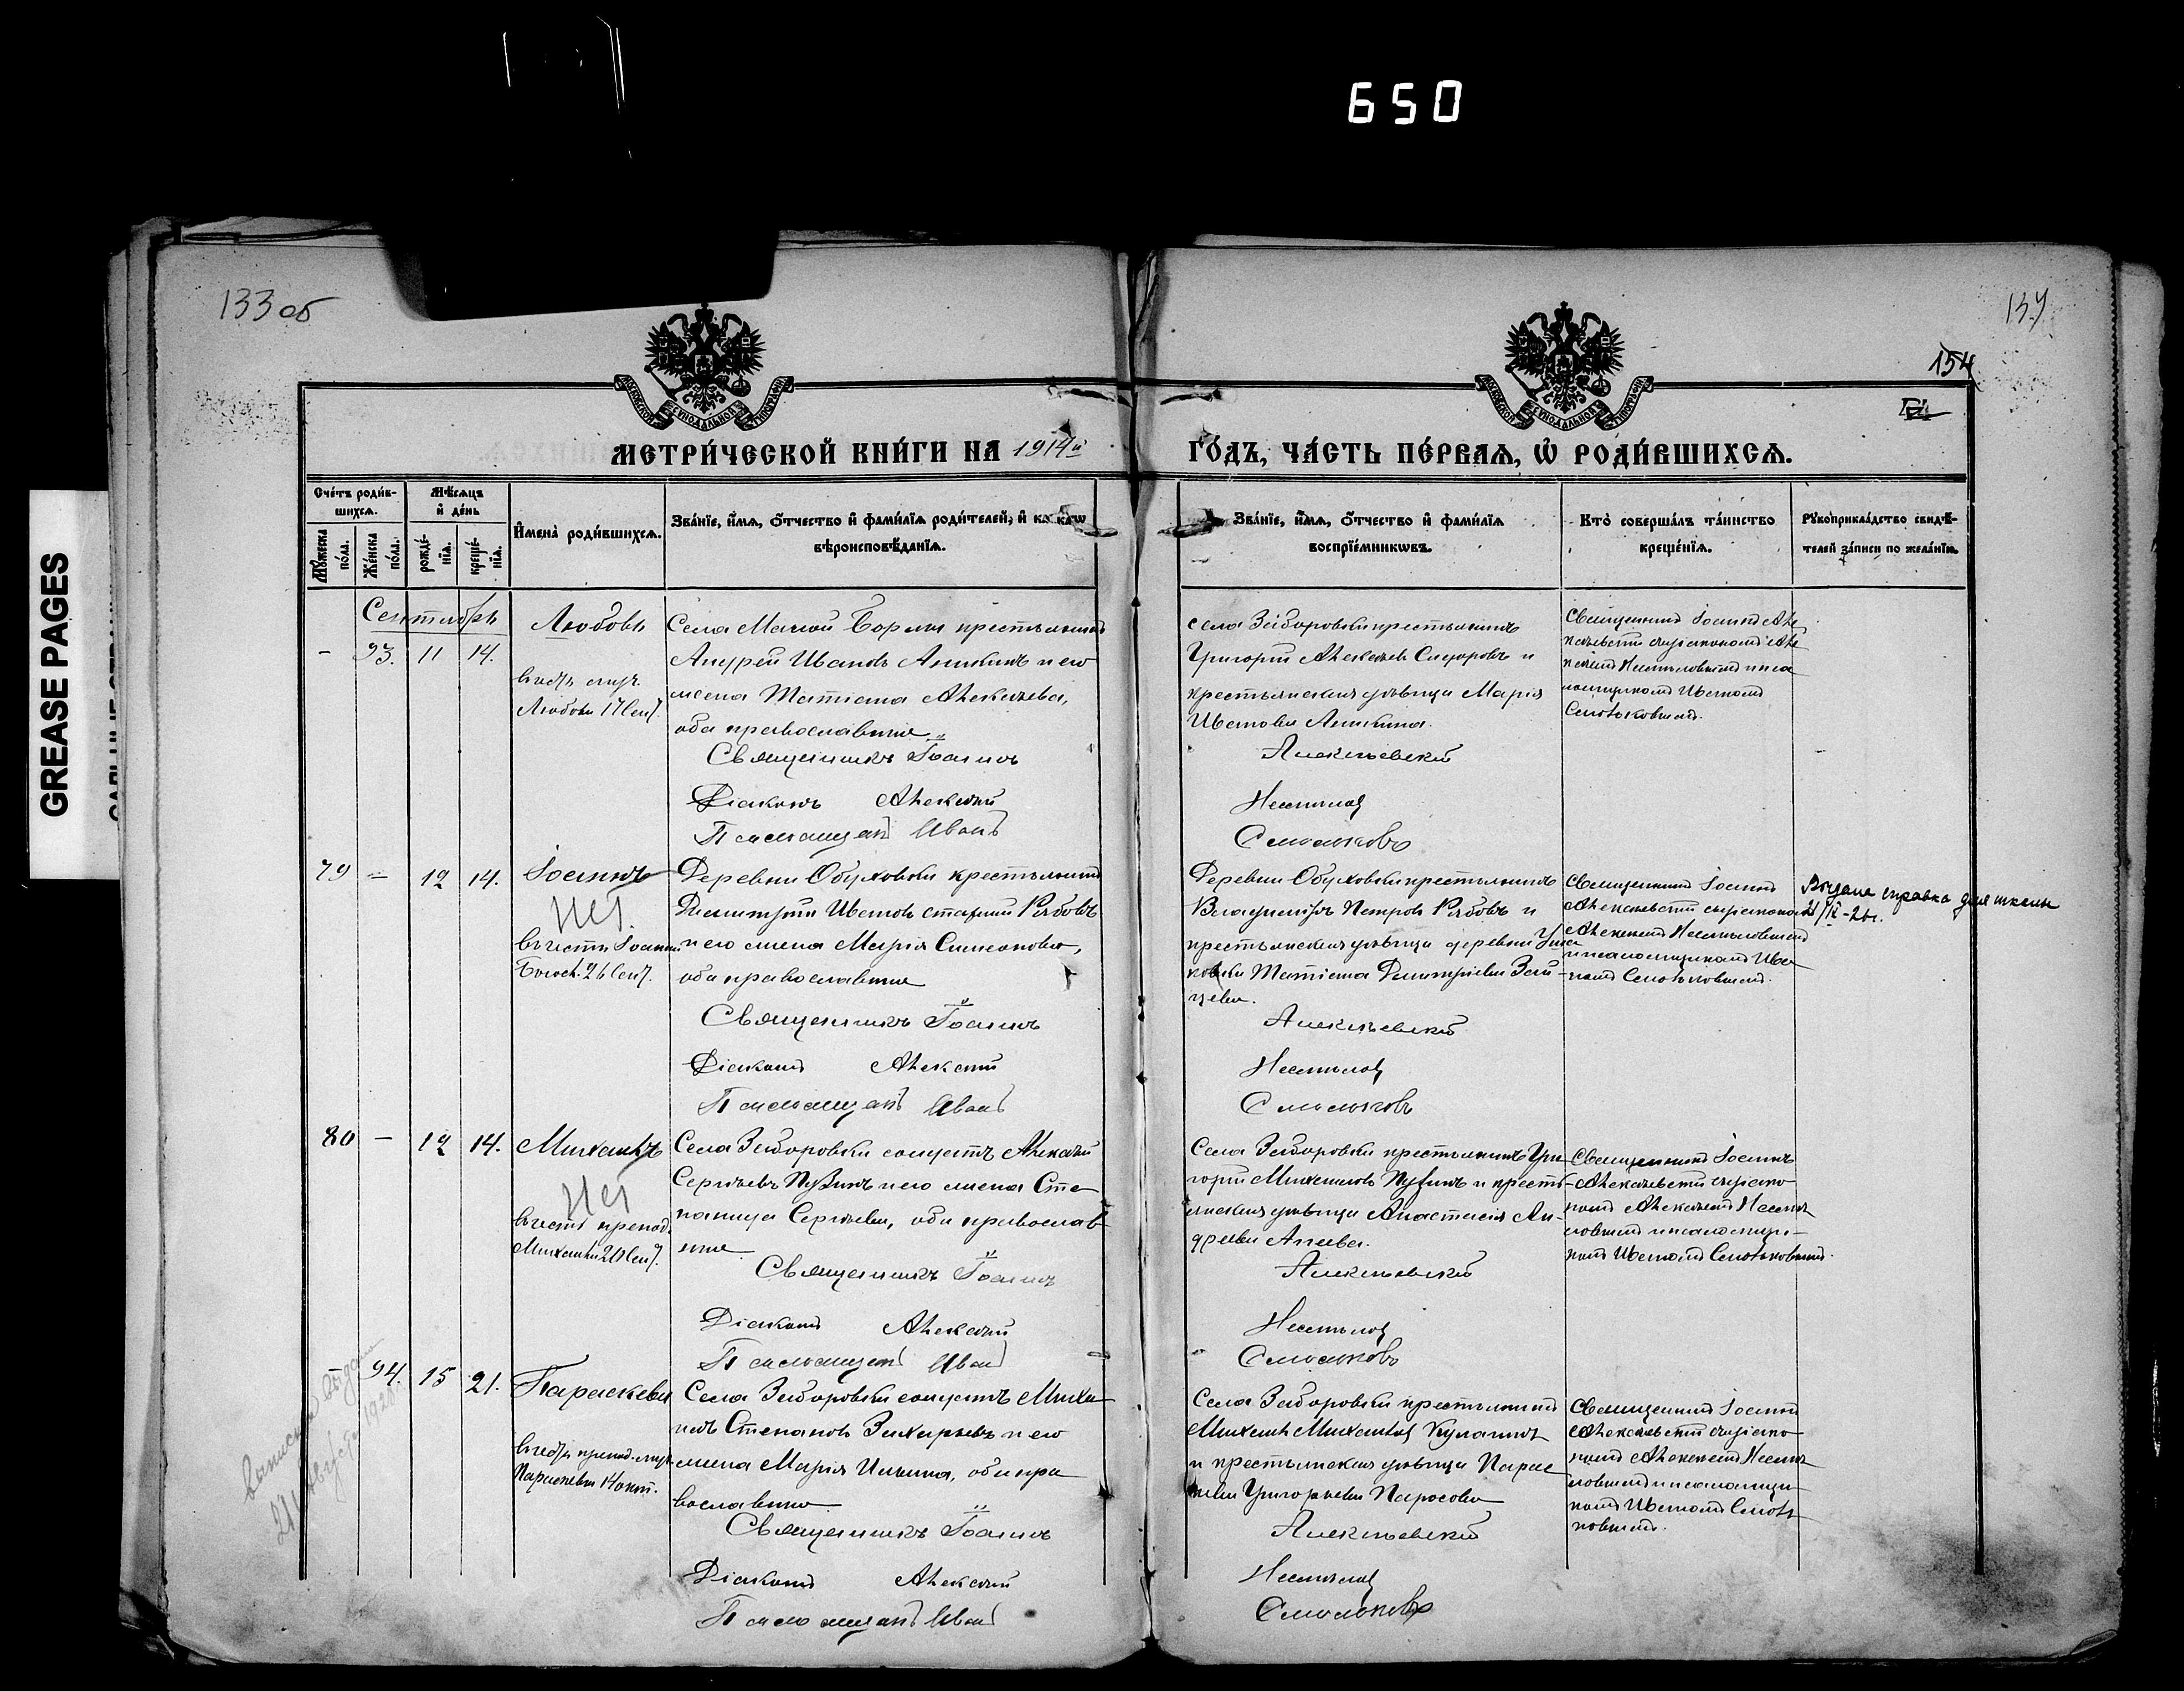 650
GREASE PAGES
133 об
134
154
МЕТРИ́ЧЕСКОЙ КНИ́ГИ НА 1914й ГО́ДЪ, ЧА́СТЬ ПЕ́РВАѦ, Ѽ РОДИ́ВШИХСѦ.
Сче́тъ роди́в-
шихсѧ.
Мꙋ́жеска по́ла.
Же́нска по́ла.
Мѣ́сѧцъ
и҆ де́нь
рожде́-
нїѧ.
креще́-
нїѧ.
И҆мена̀ роди́вшихсѧ.
Зва́нїе, и҆́мѧ, ѻ҆́тчество и҆ фами́лїѧ роди́телей, и҆
вѣроисповѣ́данїѧ.
Зва́нїе, и҆́мѧ, ѻ҆́тчество и҆ фами́лїѧ
воспрїе́мникѡвъ.
Кто̀ соверша́лъ та́инство
креще́нїѧ.
Рꙋкоприкла́дство свидѣ́-
телей за́писи по жела́нїю.
Сентябрь
- 93. 11 14.
Любовь
въ честь муч.
Любови 17 Сент.
Села Малой Бормы крестьянинъ
Андрей Ивановъ Аникинъ и его
жена Татiана Алексѣева,
оба православные
Священникъ Іоаннъ
Дiаконъ Алексѣй
Псаломщикъ Иванъ
села Заборовки крестьянинъ
Григорiй Алексѣевъ Сидоровъ и
крестьянская дѣвица Марiя
Иванова Аникина.
Алексѣевскiй
Несмѣлов
Смольковъ
Священникъ Іоаннъ Але
ксѣевскiй съ дiакономъ Але
ксѣемъ Несмѣловымъ и пса
ломщикомъ Иваномъ
Смольковымъ.
79 - 12 14.
Іоаннъ
Нет
въ честь Іоанна
Богосл. 26 Сент.
Деревни Обуховки крестьянинъ
Димитрiй Ивановъ старшiй Рябовъ
и его жена Марiя Симеонова,
оба православные
Священникъ Іоаннъ
Дiаконъ Алексѣй
Псаломщикъ Иванъ
Деревни Обуховки крестьянинъ
Владимiръ Петровъ Рябовъ и
крестьянская дѣвица деревни
Татiана Димитрiева Зай-
цева.
Алексѣевскiй
Несмѣлов
Смольковъ
Священникъ Іоаннъ
Алексѣевскiй съ дiакономъ
Алексѣемъ Несмѣловымъ
и псаломщикомъ Ива
номъ Смольковымъ.
Выдана справка для школы
80 - 12 14.
Михаилъ
Нет
въ честь препод.
Михаила
Села Заборовки солдатъ Алексѣй
Сергѣевъ Пузинъ и его жена Сте
панида Сергѣева, оба православ
ные
Священникъ Іоаннъ
Дiаконъ Алексѣй
Псаломщикъ Иванъ
Села Заборовки крестьянинъ Гри
горiй Михаиловъ Пузинъ и кресть
янская дѣвица Анастасiя Ан-
дреева Агеева.
Алексѣевскiй
Несмѣлов
Смольковъ
Священникъ Іоаннъ
Алексѣевскiй съ дiако
номъ Алексѣемъ Несмѣ
ловымъ и псаломщи-
комъ Иваномъ Смольковымъ.
- 94. 15 21.
Параскева
въ честь препод. муч.
Параскевы 14 окт.
Села Заборовки солдатъ Миха
илъ Степановъ Захарьевъ и его
жена Марiя Ильина, оба пра
вославные
Священникъ Іоаннъ
Дiаконъ Алексѣй
Псаломщикъ Иванъ
Села Заборовки крестьянинъ
Михаилъ Михаиловъ Кулагинъ
и крестьянская дѣвица Парас
кева Григорьева
Алексѣевскiй
Несмѣлов
Смольковъ
Священникъ Іоаннъ
Алексѣевскiй съ дiако
номъ Алексѣемъ Несмѣ
ловымъ и псаломщи
комъ Иваномъ Смоль
ковымъ.
выписка выдана
21 Августа 1928